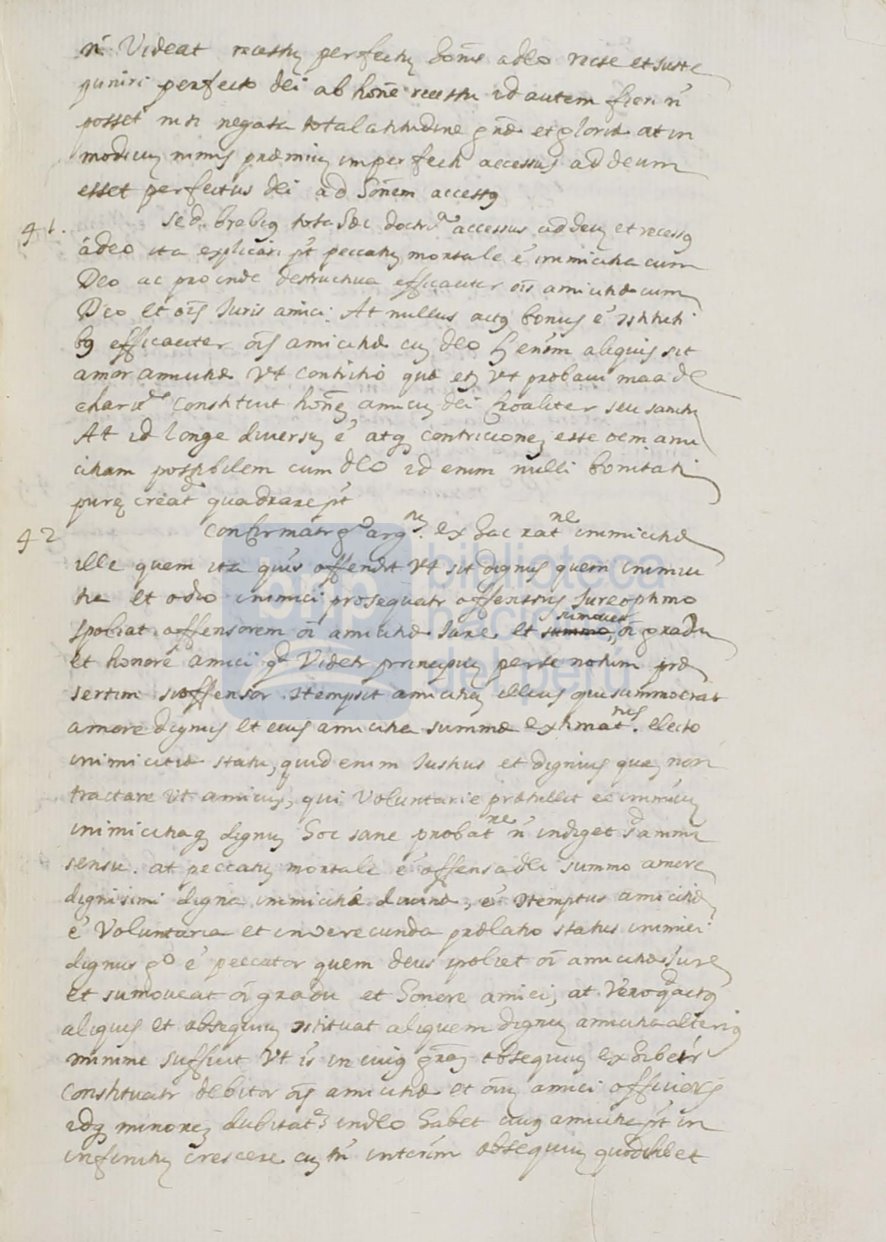 n̄ Videat recessū perfectū hoīnis a deo recte et juste
puniri perfecto dei ab hoīne recessu id autem fieri n̄
posset nisi negata tota latitudine grãe et gloriæ at in
modicū nimis præmiū imperfecti accessus ad deum
esset perfectus dei ad hoīnem accessꝰ
41. Sed brebiꝰ tota hæc doctrᵃ accessus ad deū et recessꝰ
a deo ita explicari pt̄ peccatū mortale ē inimicitia cum
Deo ac proinde destructiva efficaciter oīs amicitiæ cum
Deo et oīs Juris amici. At nullus actꝰ bonus ē
efficaciter oīs amicitiæ cū deo aliquis sit
amor amicitiæ Vt contritio quæ etᷤ Vt probavi maa de
charitᵉ Constituit hoīnē amicū dei seu sanctū
At id longe diversū ē atqꝫ contricionē esse oem ami
citiam possibilem cum deo id enim nulli bonitati
purę creatᵉ quadrare pt̄
42 Confirmatr gᵒ argᵗᵘ. ex hac ratⁿᵉ inimicitiæ
ille quem ita quis offendit Vt sit dignus quem inimici
tia et odio inimici prosequatr offensus Jure optimo
spoliat offensorem oī amicitiæ Jure et summo, sumoves oī gradu
et honore amici qᵈ Videtr principiū per se notum præ
sertim si offensor Ↄtempsit amicitiā illius qui summo erat
amore dignus et eius amicitia summæ extimatⁿⁱˢ. electo
inimicitiæ statu, quid enim Justius et dignius quā non
tractare Vt amicus, qui Voluntarie prætullit inimicū
inimicitiaqꝫ dignū hoc sane probatⁿᵉ n̄ indiget
sensu. at peccatū mortale ē offensa dei summo amore
dignissimi digna inimicitiæ divinæ, ē Ↄtemptus amicitiæ
ē Voluntaria et inverecunda prælatio status inimici
dignus gᵒ ē peccator quem deus spoliet oī amicitiæ Jure
et sumoveat oī gradu et honore amici, at Vero qᵈ actꝰ
aliquis et obsequiū Ↄstituat aliquem dignū amicitia alterius
minime sufficit Vt is in cuiꝰ grãᷤ obsequiū exhibetr
Constituatr debitor oīs amicitiæ et oīū amici officiorꝫ
idqꝫ minorē dubitatᵉ in deo habet cuiꝰ amicitia pt̄ in
infinitū crescere cū tn̄ interim obsequiū quodlibet